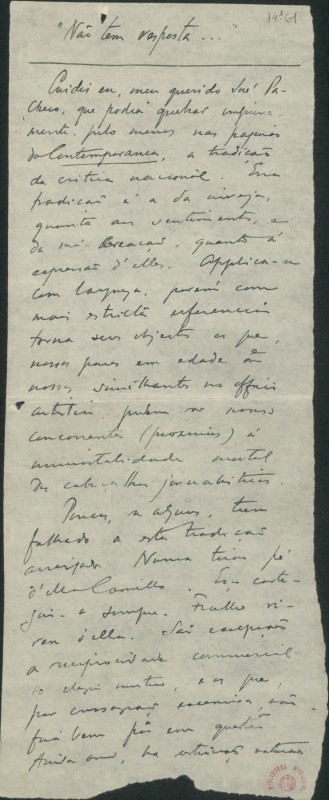 14¹-61
"Não tem resposta..."
Cuidei eu, meu querido José Pa-
checo, que podia quebrar impune-
mente, pelo menos nas paginas
da Contemporanea, a tradição
da critica nacional. Essa
tradição é a da inveja,
quanto aos sentimentos, e
da má-creação, quanto á
expressão d'elles. Applica-se
com largueza, porém com
mais estricta referencia
torna seus objectos os que,
nossos pares em edade ou
nossos similhantes no officio
artistico, podem ser nossos
concorrentes (proximos) á
immortalidade mortal
dos cabeçalhos jornalisticos.
Poucos, se alguns, teem
falhado a esta tradição
arreigada. Nunca tirou pé
d'ella Camillo. Eça corte-
jou-a sempre. Fialho vi-
veu d'ella. São excepções
a reciprocidade commercial
do elogio mutuo, e os que,
por
fica bem pôr em questão.
Ainda assim, ha
BIBLIOTECA NACIONAL